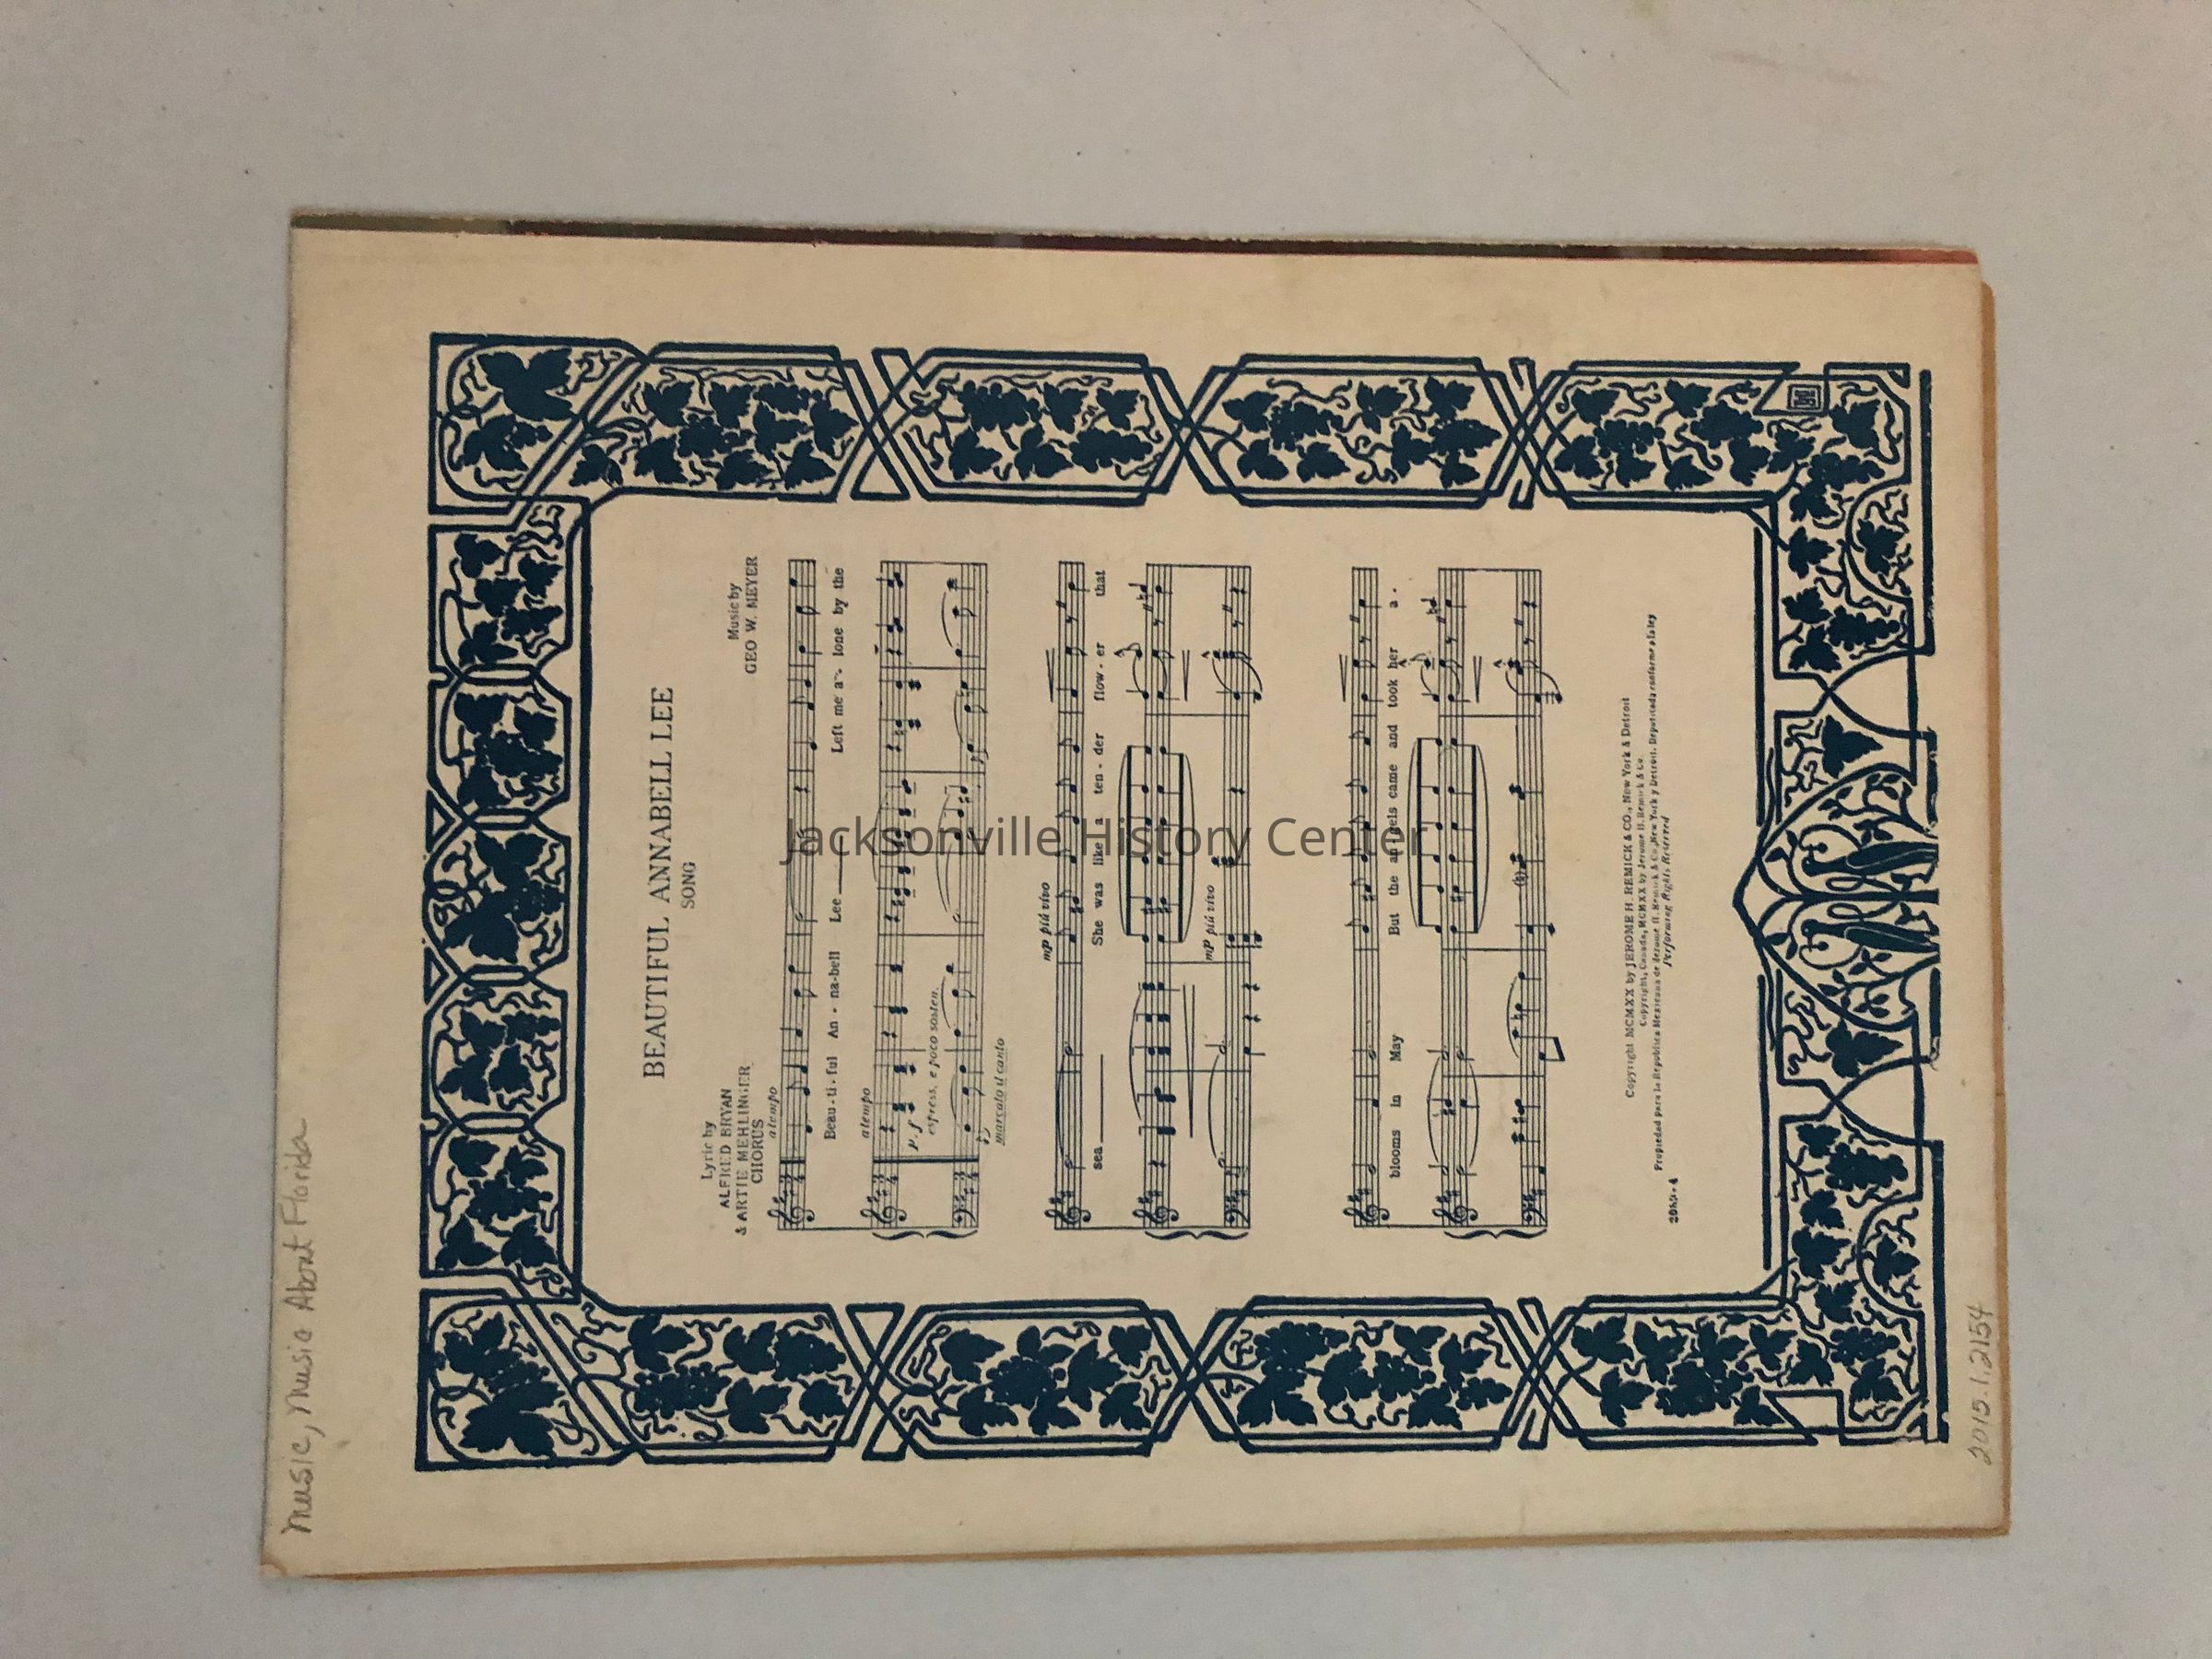 Music, Music About Florida
BEAUTIFUL ANNABELL LEE
SONG
Lyric by
ALFRED BRYAN
& ARTIE MEHLINGER
Music by
GEO W. MEYER
CHORUS
a tempo
Beau - ti - ful An - na-bell Lee Left me a - lone by the
a tempo
p-f
espress. e poco sosten.
marcato il canto
mp più vivo
sea She was like a ten - der flow - er that
mp più vivo
blooms in May But the angels came and took her a -
Copyright MCMXX by JEROME H. REMICK & CO., New York & Detroit
Copyright, Canada, MCMXX by Jerome H. Remick & Co.
Propiedad para la Republica Mexicana de Jerome H. Remick & Co., New York y Detroit. Depositada conforme a la ley
Performing Rights Reserved
2015.1.2154
Jacksonville History Center